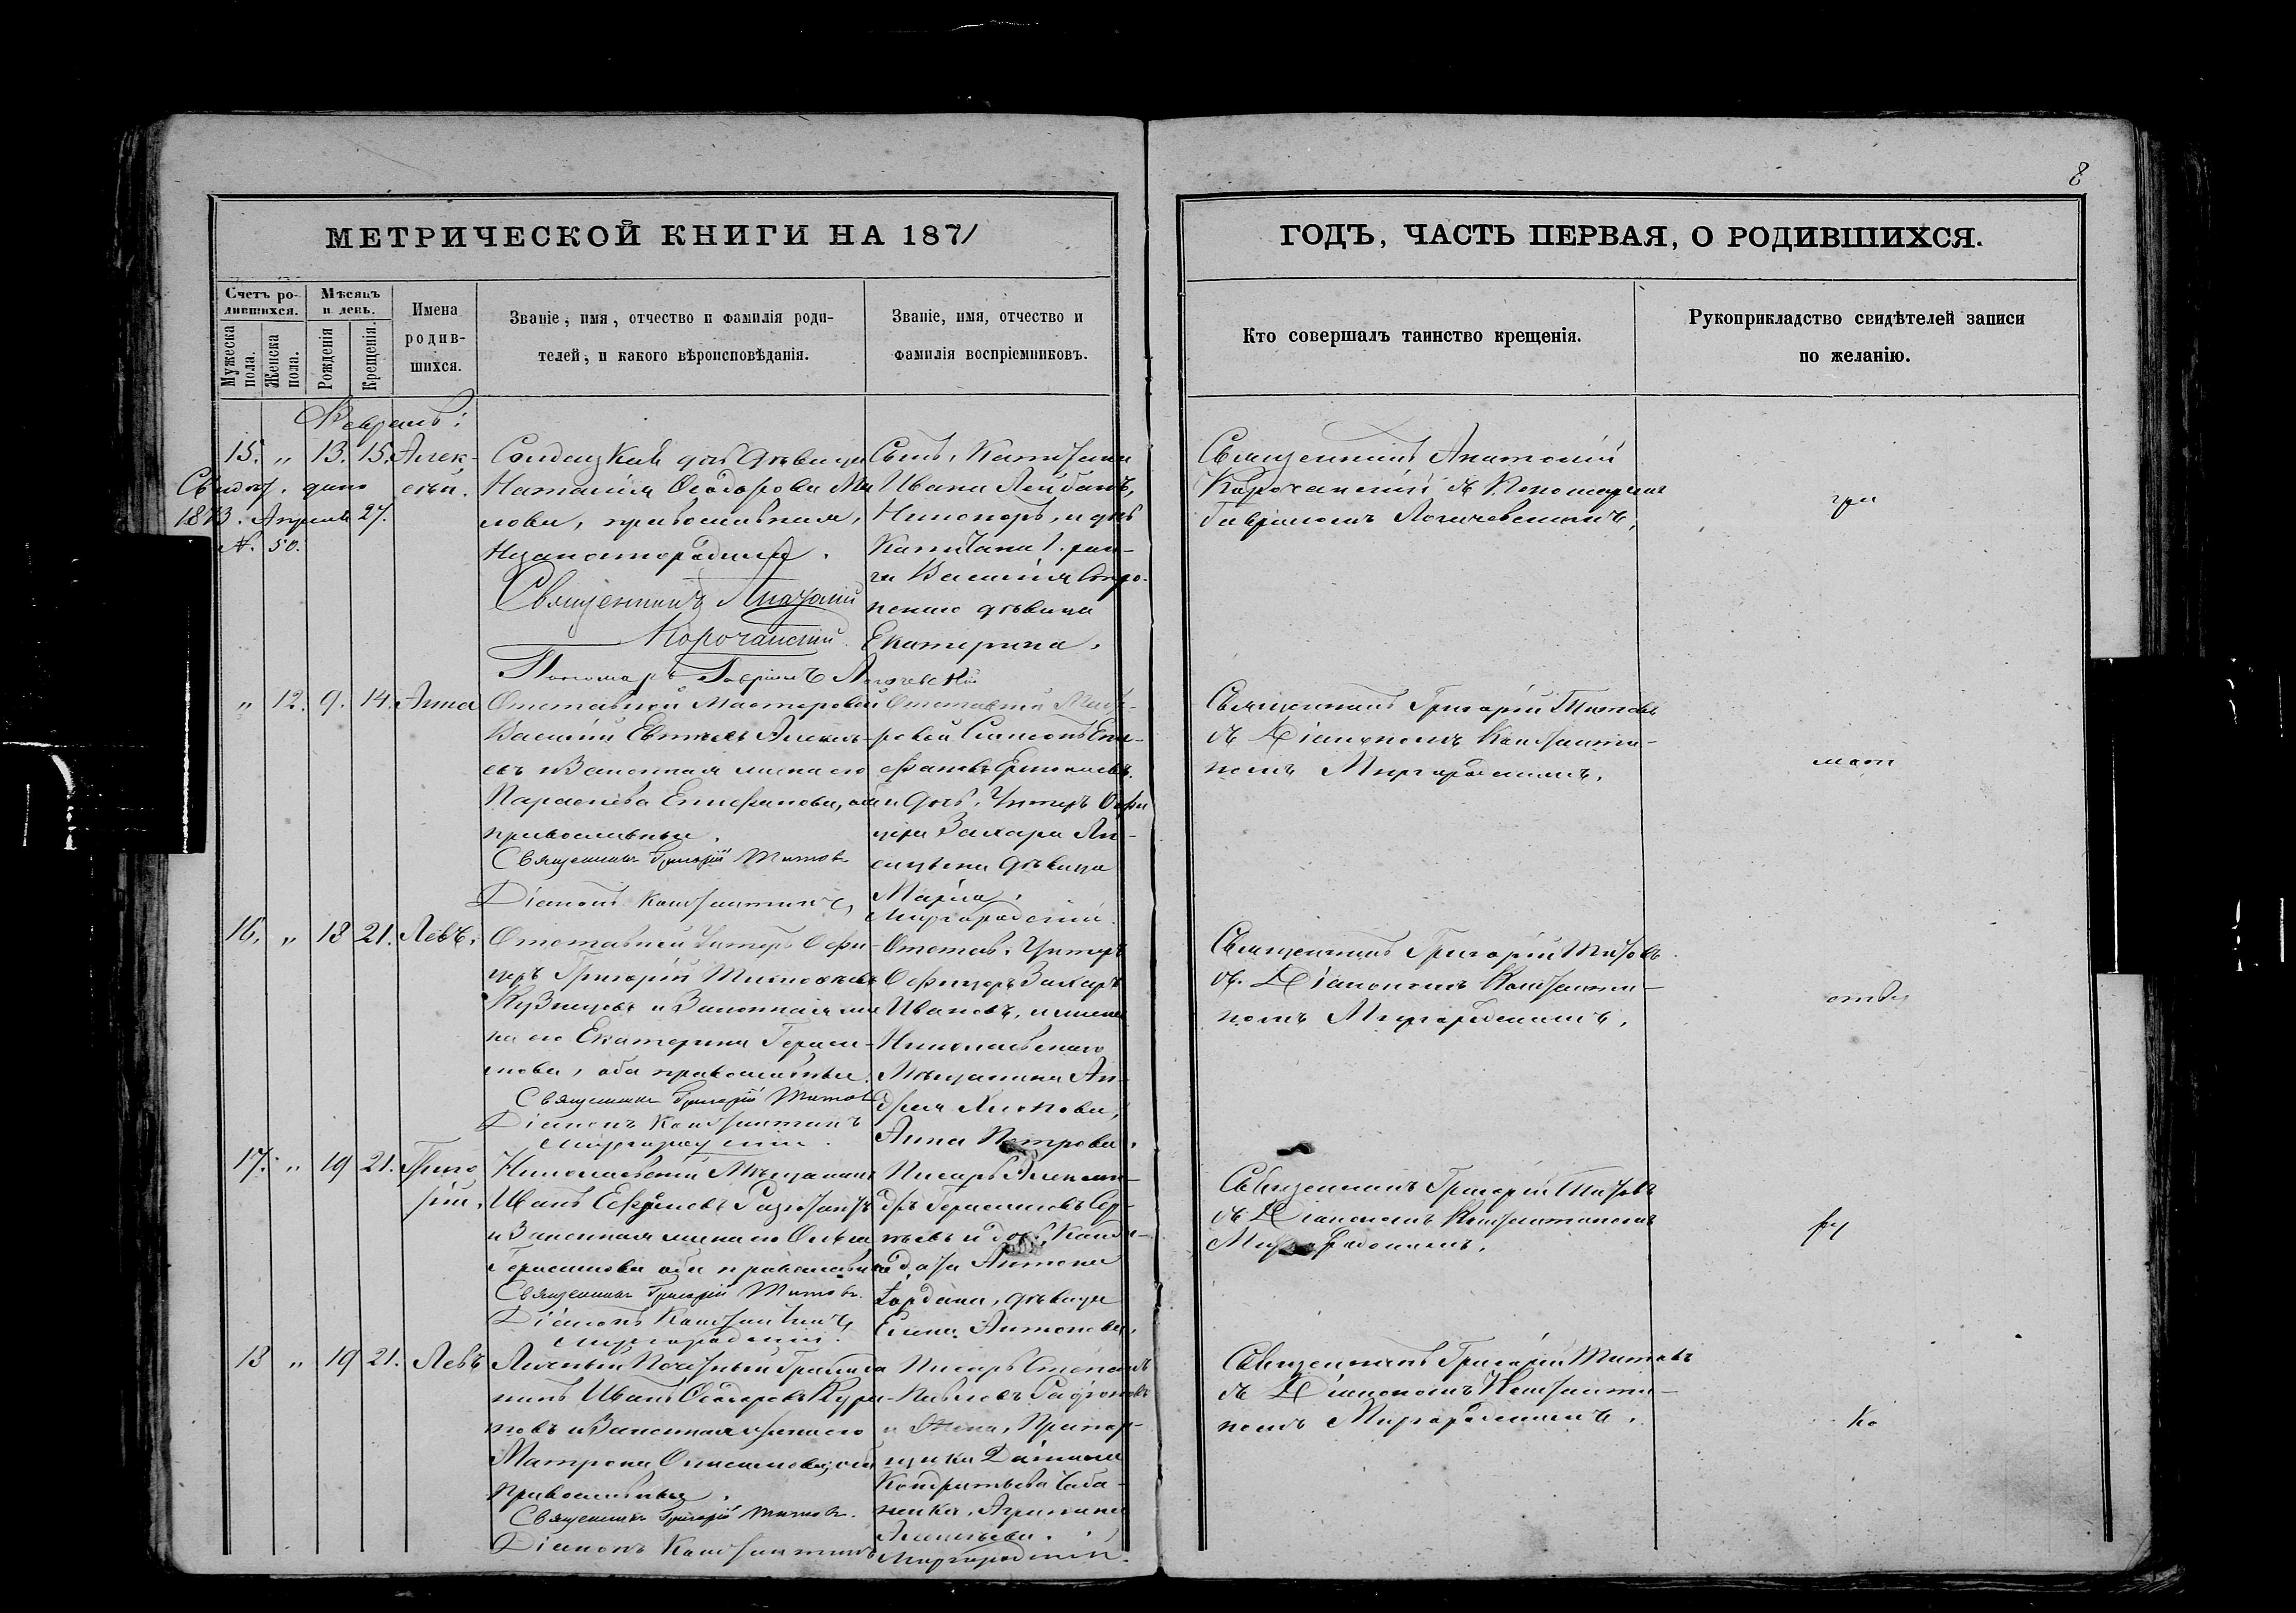 8
МЕТРИЧЕСКОЙ КНИГИ НА 1871
ГОДЪ, ЧАСТЬ ПЕРВАЯ, О РОДИВШИХСЯ.
Счетъ родившихся.
Мужеска пола.
Женска пола.
Мѣсяцъ и день.
Рожденія
Крещенія.
Имена родившихся.
Званіе, имя, отчество и фамилія родителей, и какого вѣроисповѣданія.
Званіе, имя, отчество и фамилія воспріемниковъ.
Кто совершалъ таинство крещенія.
Рукоприкладство свидѣтелей записи по желанію.
Февраль:
15. " 13. 15. Алексѣй.
Свидѣт. дано
1873. Апрѣля 27.
№. 50.
Солдатская дочь дѣвица
Наталія Ѳеодорова
лова, православная,
Незаконнорожденный.
Священникъ Анатолій
Корочанскій.
Пономарь Гавріилъ
Сынъ, Капитана
Ивана
Никаноръ, и дочь
Капитана 1. ран-
га Василія
дѣвица
Екатерина.
Священникъ Анатолій
Корочанскій съ Пономаремъ
Гавріиломъ
гра
" 12. 9. 14. Анна
Отставной Мастеровой
Василій Алексѣ-
евъ и Законная жена его
Параскева Епифанова, оба
православные.
Священникъ Григорій Титовъ
Діаконъ Константинъ
Отставной Масте-
ровой Симеонъ Епи-
фановъ Ермолаевъ
и дочь, Унтеръ Офи
цера Захара
дѣвица
Марія.
Миргородскій.
Священникъ Григорій Титовъ
съ Діакономъ Константи-
номъ Миргородскимъ.
мот
16. " 18 21. Левъ.
Отставной Унтеръ Офи-
церъ Григорій Тимофѣевъ
Кузнецовъ и Законная же
на его Екатерина Гераси-
мова, оба православные.
Священникъ Григорій Титовъ
Діаконъ Константинъ
Миргородскій.
Отстав. Унтеръ
Офицеръ Захаръ
Ивановъ, и жена
Николаевскаго
Мѣщанина Ан-
дрея
Анна Петрова.
Священникъ Григорій Титовъ
съ Діакономъ Константи-
номъ Миргородскимъ.
17. " 19 21. Григо
рій.
Николаевскій Мѣщанинъ
Иванъ Ефимовъ
и Законная жена его Ольга
Герасимова оба православные
Священникъ Григорій Титовъ.
Діаконъ Константинъ
Миргородскій.
Писарь Алексан-
дръ Герасимовъ Сер-
Антона
Іордана, дѣвица
Елена Антонова.
Священникъ Григорій Титовъ
съ Діакономъ Константиномъ
Миргородскимъ.
18 " 19 21. Левъ
Личный Почетный Гражда
нинъ Иванъ Ѳеодоровъ
и Законная жена его
Матрона оба
православные.
Священникъ Григорій Титовъ.
Діаконъ Константинъ
Писарь Степанъ
Павловъ
и Жена, Прапор-
щика Даміана
Кондратьева Чаба-
ненка, Агрипина
Миргородскій.
Священникъ Григорій Титовъ
съ Діакономъ Константи-
номъ Миргородскимъ.
ко